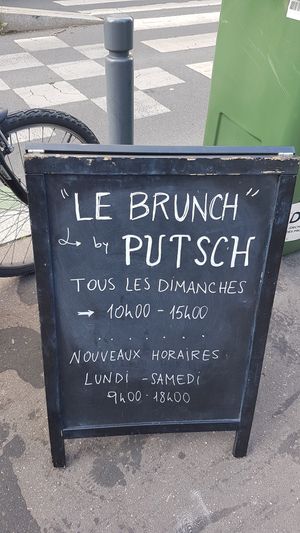 "LE BRUNCH"
↳ by PUTSCH
TOUS LES DIMANCHES
→ 10h00 - 15h00
. . . . . . .
NOUVEAUX HORAIRES
LUNDI - SAMEDI
9h00 - 18h00